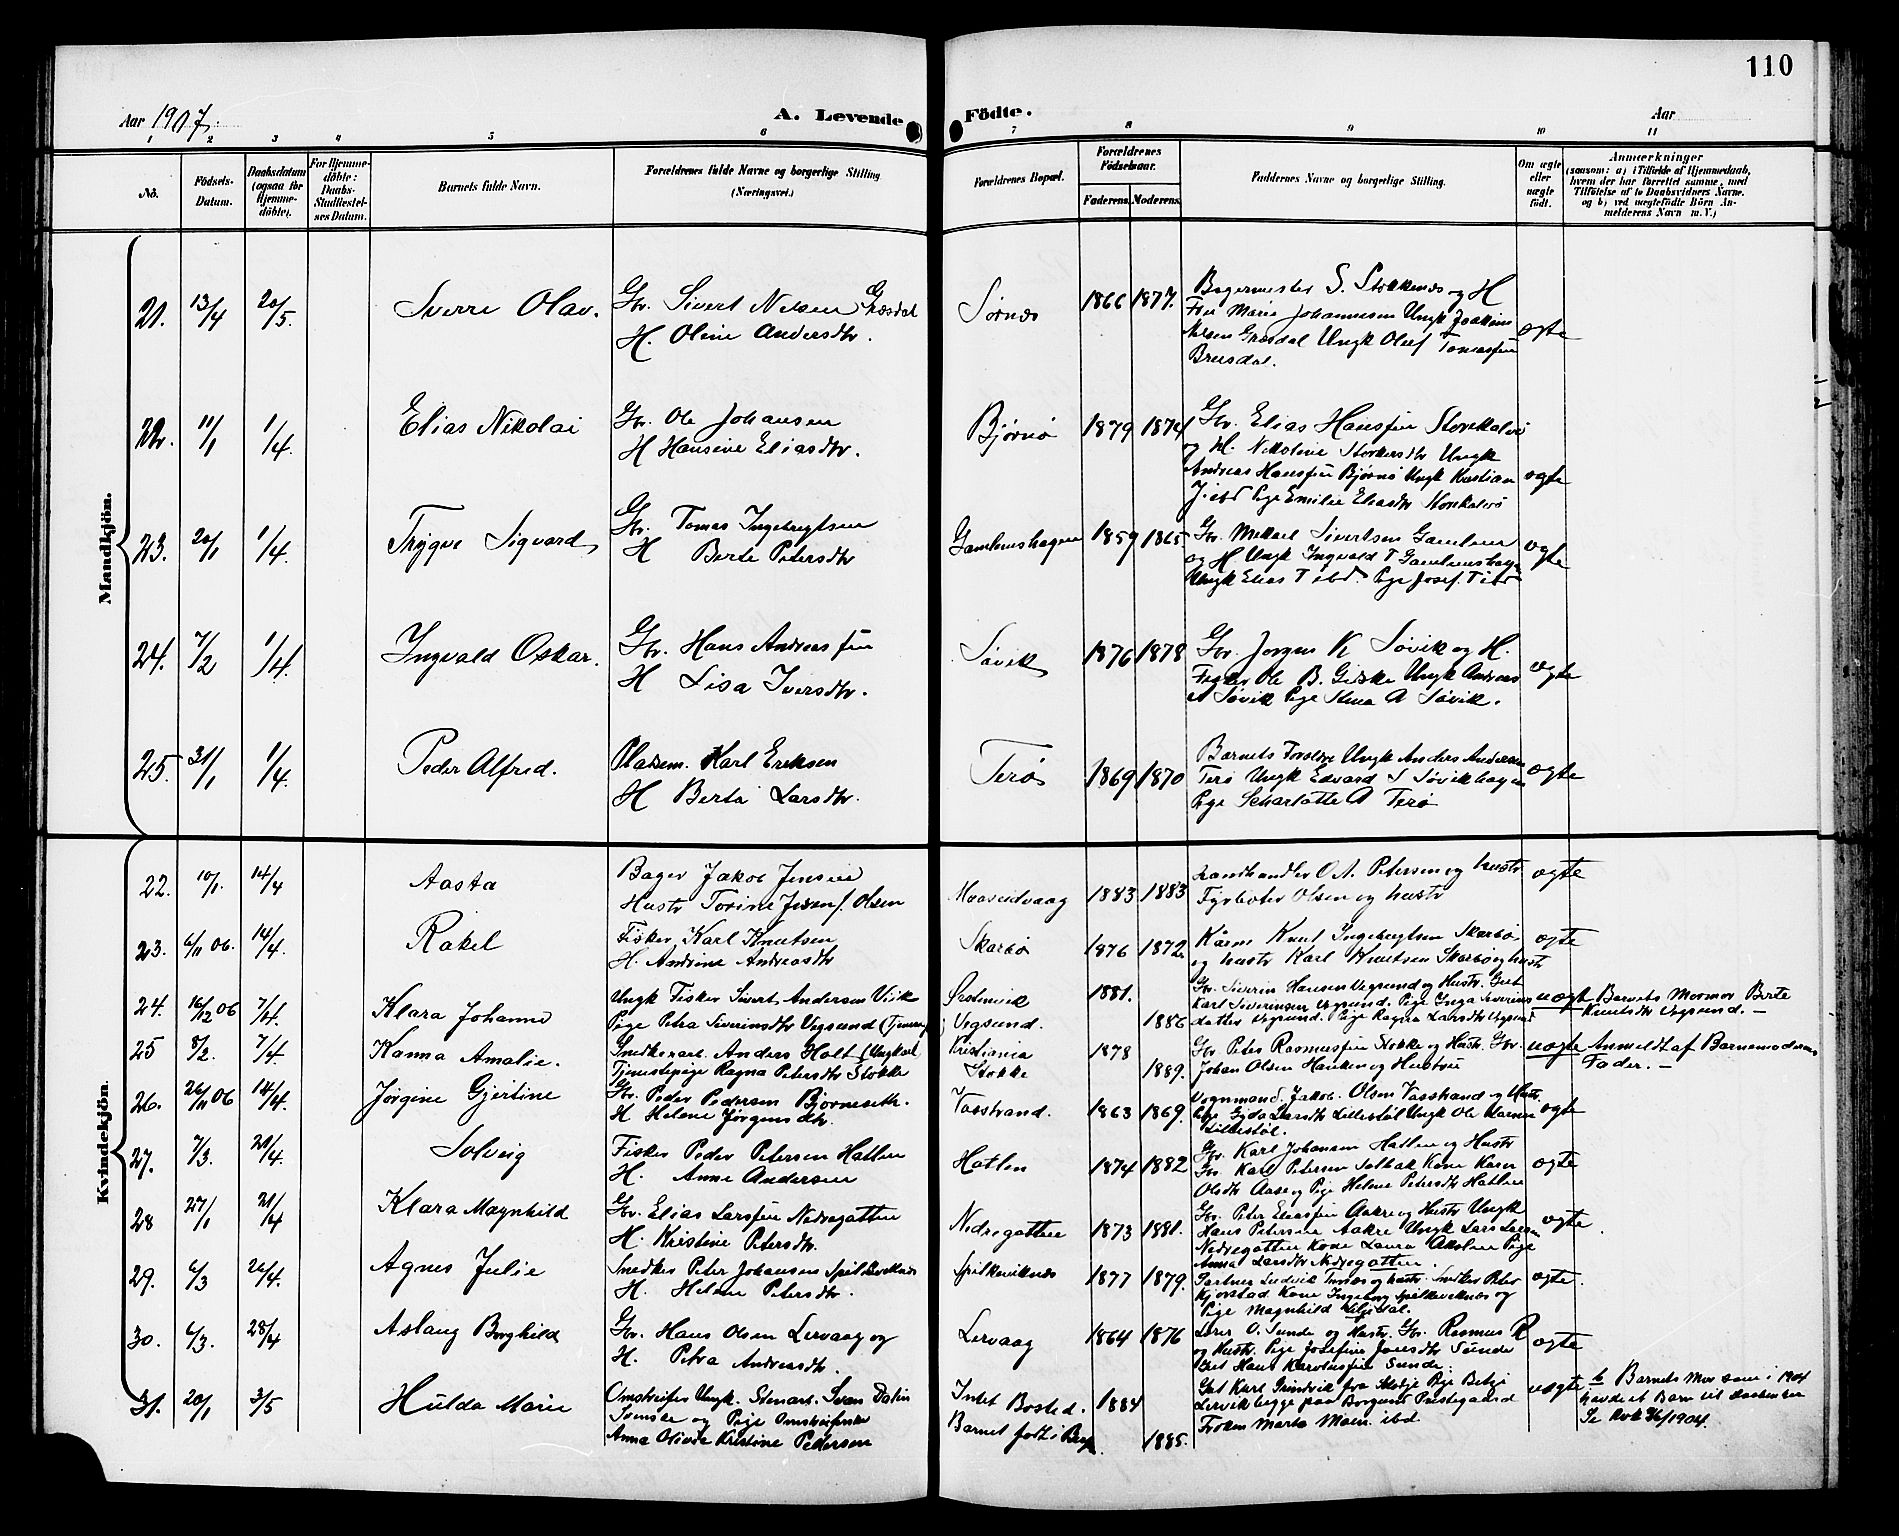 110
Aar 1907.
A. Levende
Födte.
Aar
1 2 3 4 5 6 7 8 9 10 11
No.
Födsels-
Datum.
Daabsdatum
(ogsaa for
Hjemme-
döbte).
For Hjemme-
döbte:
Daabs-
Stadfæstel-
ses Datum.
Barnets fulde Navn.
Forældrenes fulde Navne og borgerlige Stilling
(Næringsvei.)
Forældrenes Bopæl.
Forældrenes
Födselsaar.
Faderens. Moderens.
Faddernes Navne og borgerlige Stilling.
Om ægte
eller
uægte
födt.
Anmærkninger
(saasom: a) i Tilfælde af Hjemmedaab,
hvem der har forrettet samme, med
Tilföielse af to Daabsvidners Navne,
og b) ved uægtefödte Börn An-
melderens Navn m. V.)
Mandkjön.
21. 13/4 20/5. Sverre Olav. Gbr. Sivert Nelsen Græsdal
H. Oline Andersdtr.
Sørnes 1866 1877.
Bagermester S. Stokkenes og H
Fru Marie Johannesen Ungk Joakim
Nelsen Græsdal Ungk Oluf Tomassen
Brusdal.
ægte
22. 11/1 1/4. Elias Nikolai Gbr. Ole Johansen
H Hansine Eliasdtr.
Bjørnø 1879 1874
Gbr. Elias Hansen Storekalvø
og H. Nikoline Ungk
Andreas Hansen Bjørnø Ungk Kristian
J. ibd Pige Emilie Eliasdtr Storekalvø
ægte
23. 20/1 1/4. Trygve Sigvard Gbr. Tomas Ingebregtsen
H Berte Petersdtr
Gamlemshagen 1859 1865
Gbr. Mikael Sivertsen Gamlem
og H Ungk Ingvald T Gamlemshagen
Ungk Elias T ibd. Pige Josef. T ibd
ægte
24. 7/2 1/4. Ingvald Oskar. Gbr. Hans Andreassen
H Lisa Iversdtr.
Søvik 1876 1878
Gbr. Jørgen K Søvik og H.
Fisker Ole B. Giske Ungk Andreas
A Søvik Pige Anna A Søvik.
ægte
25. 31/1 1/4. Peder Alfred. Pladsm. Karl Eriksen
H Berta Larsdtr.
Terø 1869 1870
Barnets Forældre Ungk Anders Andersen
Terø Ungk Edvard S Søvikhagen
Pige Scharlotte A Terø
ægte
Kvindekjön.
22. 10/1. 14/4 Aasta Bager Jakob Jensen
Hustr Torine Jensen f. Olsen
Maaseidvaag 1883 1883
Landhandler O. A. Petersen og hustr
Fyrbøter Olsen og hustr
ægte
23. 6/11 06. 14/4. Rakel Fisker Karl Knutsen
H. Andrine Andreasdtr
Skarbø 1876 1872
Kårm Knut Ingebrigtsen Skarbø
og hustr Karl Knutsen Skarbø og hustr
ægte
24. 16/12 06 7/4. Klara Johanne Ungk Fisker Sivert Andersen Viik
Pige Petra Severinsdtr Vegsund (Tjener)
Ørstenvik
Vegsund. 1881. 1886
Gbr. Severin Hansen Vegsund og Hustr. Gut
Karl Severinsen Vegsund. Pige Inga Severins
datter Vegsund. Pige Ragna Larsdtr Vegsund
uægte Barnets Mormor Berte
Knutsdtr Vegsund. —
25 8/2. 7/4. Kanna Amalie. Snedkerarb. Anders Holt (Ungkarl
Tjenestepige Ragna Petersdtr Stokke
Kristiania
Stokke 1878 1889.
Gbr. Peter Rasmussen Stokke og Hustr. Gbr.
Johan Olsen Hanken og Hustru
uægte Anmeldt af Barnemoderens
Fader. —
26. 26/11 06 14/4. Jørgine Gjertine Gbr. Peder Pedersen Bjørneseth.
H Helene Jørgensdtr.
Vasstrand. 1863 1869.
Vognmand Jakob Olsen Vasstrand og Hust.
Pige Gyda Larsdtr Lillestøl Ungk Ole Larsen
Lillestøl.
ægte
27. 7/3. 21/4. Solveig Fisker Peder Petersen Hatlen
H. Anne Andersen
Hatlen 1874 1882
Gbr. Karl Johansen Hatlen og Hustr
Gbr. Karl Petersen Solbak Kone Karen
Olsdtr Aase og Pige Helene Petersdtr Hatlen
ægte
28 27/1 21/4 Klara Magnhild Gbr. Elias Larssen Nedregotten
H. Kristine Petersdtr.
Nedregotten 1873 1881.
Gbr. Peter Eliassen Aakre og Hustr Ungk
Hans Petersen Aakre Ungk Lars Larsen
Nedregotten Kone Laura Pige
Anna Larsdtr Nedregotten.
ægte.
29. 6/3 26/4. Agnes Julie Snedker Peter Johansen Spilkeviknes
H. Helene Petersdtr.
Spilkeviknes 1877 1879.
Gartner Ludvik Furnes og hustr. Snedker Peter
Kjørstad Kone Ingeborg Spilkeviknes og
Pige Magnhild
ægte.
30. 6/3. 28/4 Aslaug Borghild Gbr. Hans Olsen Lervaag og
H. Petra Andreasdtr.
Lervaag 1864 1876
Lærer O. Sunde og Hustr. Gbr. Rasmus R
og Hustr. Pige Josefine Joersdtr Sunde
Gut Hans Karolussen Sunde.
ægte
31. 20/1 3/5 Hulda Marie Omstreifer Ungk. Svan Dalin
Svenske og Pige Omstreiferske
Anna Olivie Kristine Pedersen
Intet Bosted.
Barnet født i Berg. 1884 1885.
Gut Karl Grindvik fra Skodje Pige Betzi
Lervik begge paa Borgund Prestegaard
Frøken Marta Moen. ibd
uægte b Barnets Mor som i 1904
havde et Barn til daaben her
Se 1904.